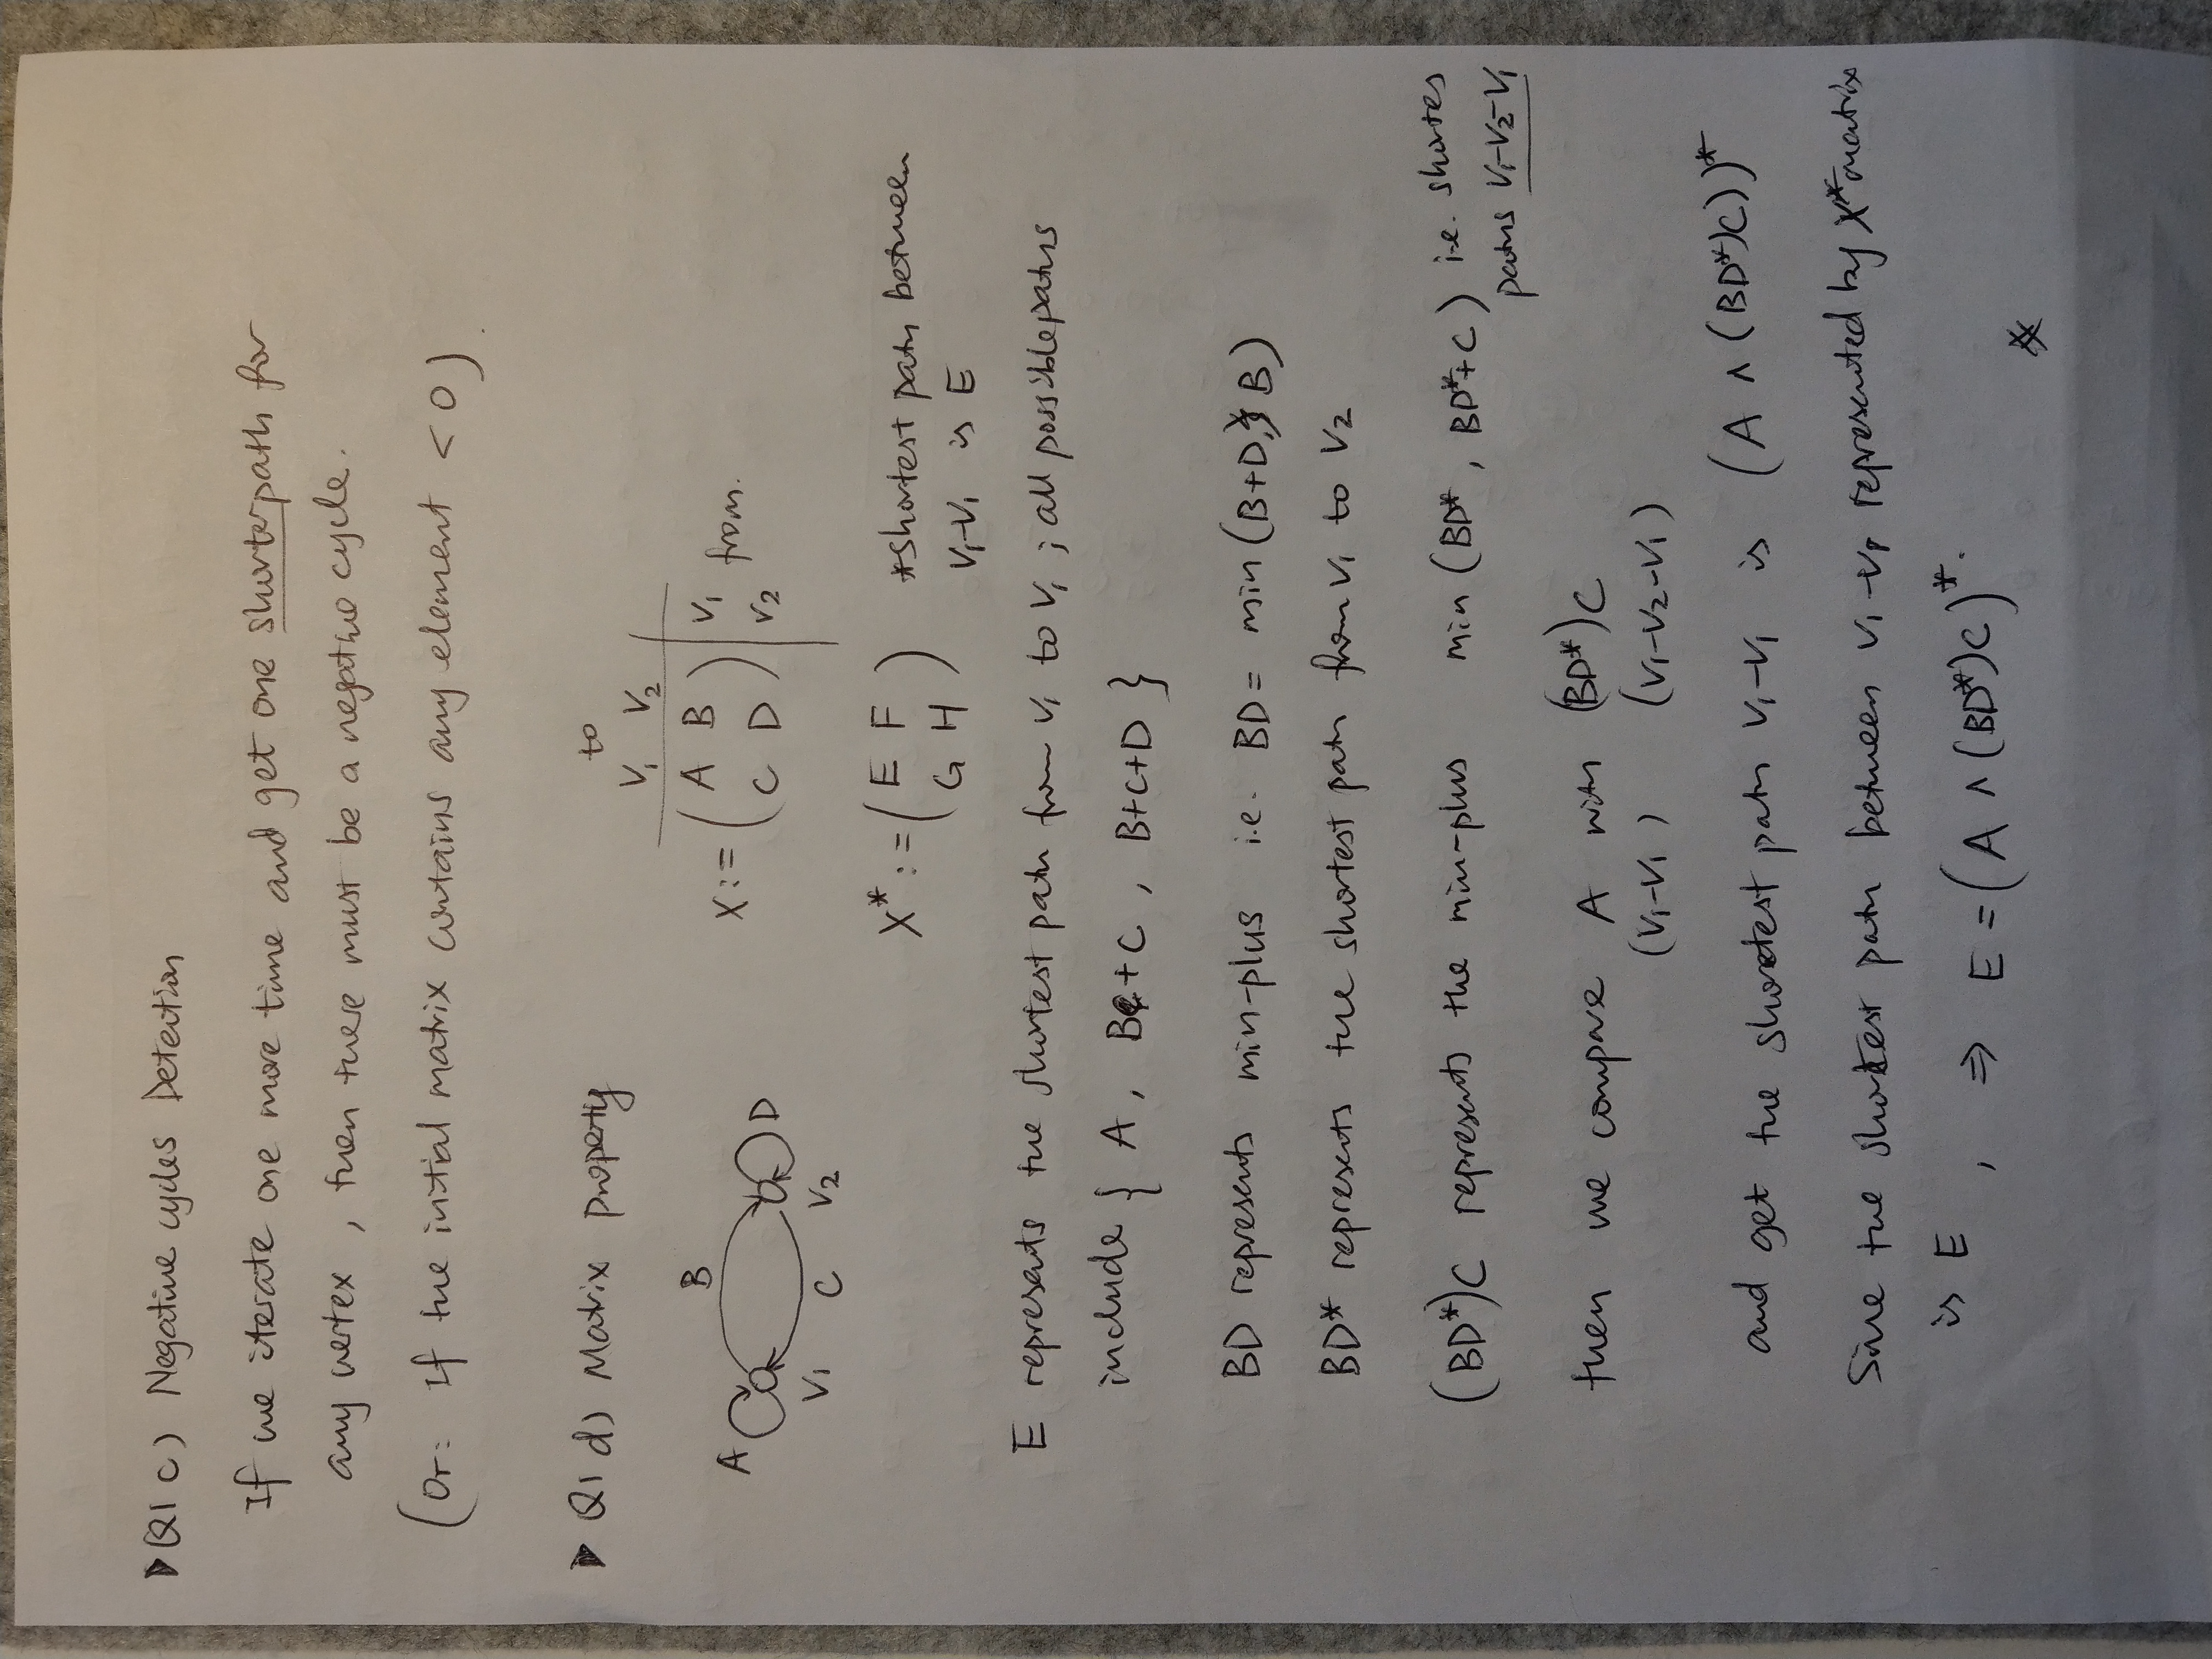 Q1 c) Negative cycles Detection
If we iterate one more time and get one shorter path for
any vertex , then there must be a negative cycle.
(Or: If the initial matrix contains any element < 0).
Q1 d) Matrix property
to
V1 V2
A B V1
X := ( ) from.
C D V2
A B D
V1 C V2
X* := ( E F ) *shortest path between
G H V1-V1 is E
E represents the shortest path from V1 to V1 ; all possible paths
include { A , B+C , B+C+D }
BD represents min-plus i.e. BD = min (B+D, B)
BD* represents the shortest path from V1 to V2
(BD*)C represents the min-plus min (BD* , BD*+C) i.e. shortes
paths V1-V2-V1
then we compare A with (BD*)C
(V1-V1) (V1-V2-V1)
and get the shortest path V1-V1 is (A ∧ (BD*)C))*
Since the shortest path between V1-V1 represented by X* matrix
is E , ⇒ E = (A ∧ (BD*)C)*.